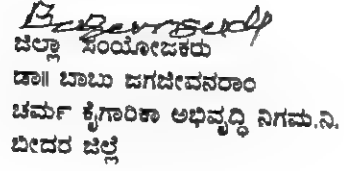 ಜಿಲ್ಲಾ ಸಂಯೋಜಕರು
ಡಾ|| ಬಾಬು ಜಗಜೀವನರಾಂ
ಚರ್ಮ ಕೈಗಾರಿಕಾ ಅಭಿವೃದ್ಧಿ ನಿಗಮ.ನಿ.
ಬೀದರ ಜಿಲ್ಲೆ